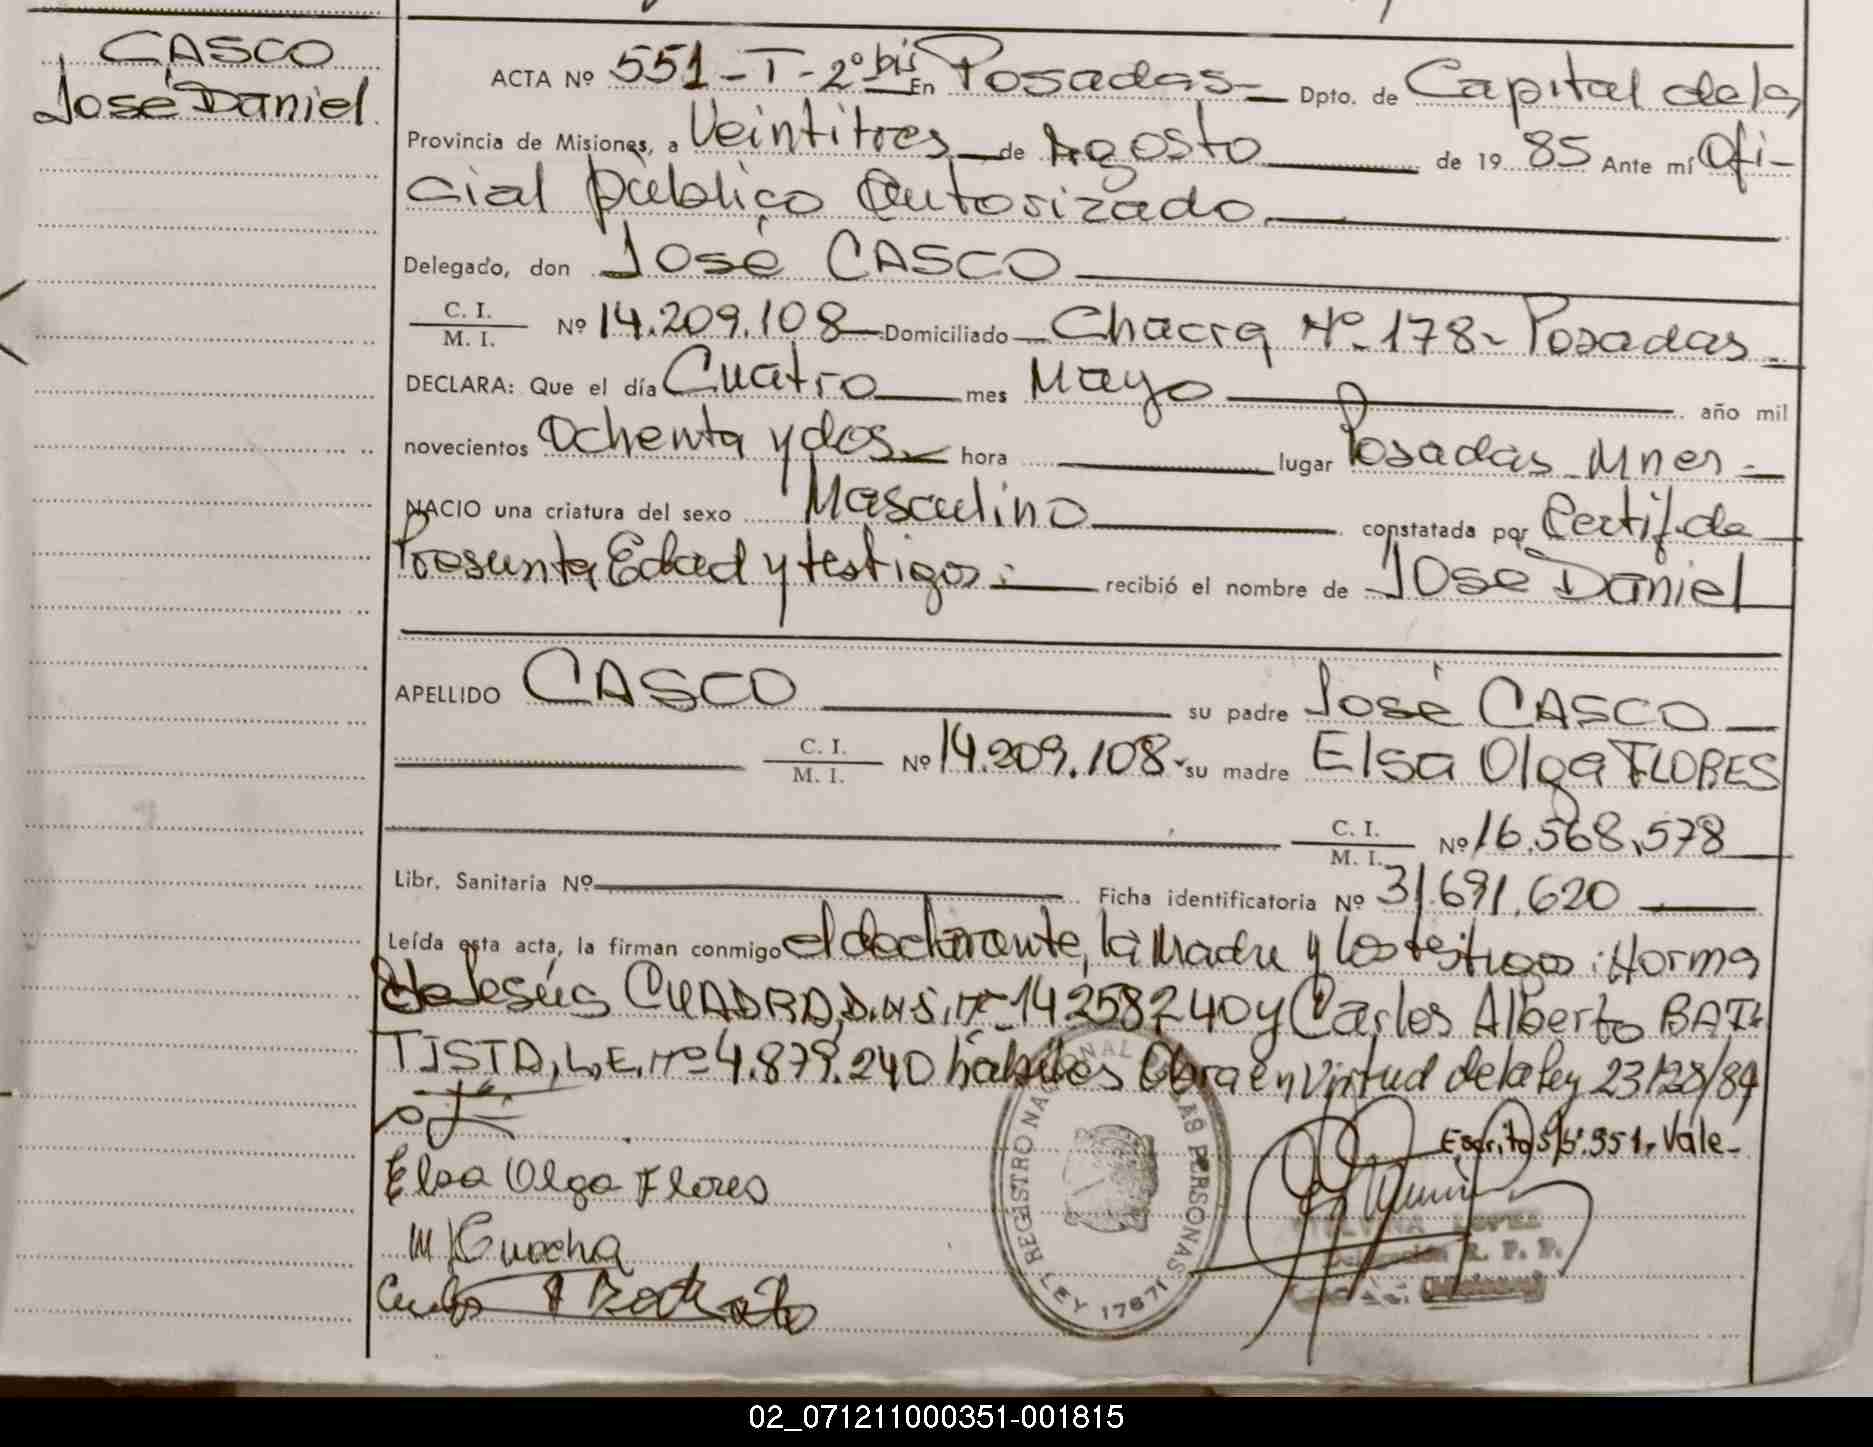 CASCO
José Daniel
ACTA Nº 551-T-2º bis En Posadas Dpto. de Capital de la
Provincia de Misiones, a Veintitres de Agosto de 1985 Ante mí Ofi-
cial público Autorizado
Delegado, don José CASCO
C. I.
M. I. Nº 14.209.108 Domiciliado Chacra Nº 178- Posadas
DECLARA: Que el día Cuatro mes Mayo año mil
novecientos Ochenta y dos hora lugar Posadas Mnes
NACIO una criatura del sexo Masculino constatada por Certif. de
Presunta Edad y testigos: recibió el nombre de José Daniel
APELLIDO CASCO su padre José CASCO
C. I.
M. I. Nº 14.209.108 su madre Elsa Olga FLORES
C. I.
M. I. Nº 16.568.578
Libr. Sanitaria Nº Ficha identificatoria Nº 31.691.620
Leída esta acta, la firman conmigo el declarante, la Madre y los testigos: Norma
de Jesús CUADRA, D.N.I. Nº 14258240 y Carlos Alberto BAT-
TISTA, L.E. Nº 4.879.240 hábiles Obra en Virtud de la Ley 23128/84
Escrito s/b. 551. Vale-
Elsa Olga Flores
REGISTRO NACIONAL DE LAS PERSONAS
LEY 17671
LOPEZ
R. P. P.
02_071211000351-001815